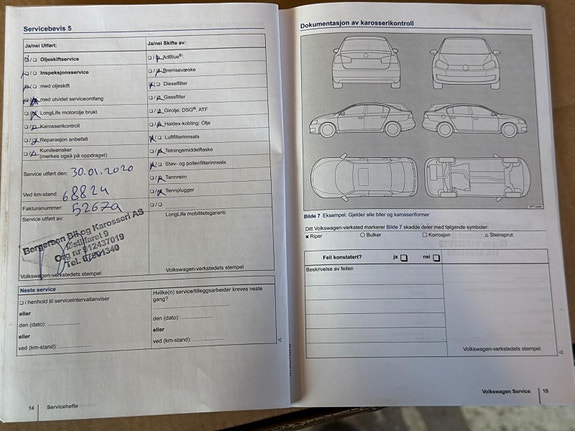 Servicebevis 5
Ja/nei Utført:
Oljeskiftservice
Inspeksjonsservice
med oljeskift
med utvidet serviceomfang
LongLife motorolje brukt
Karosserikontroll
Reparasjon anbefalt
Kundeønsker
(merkes også på oppdraget)
Service utført den: 30.01.2020
Ved km-stand: 68824
Fakturanummer:
Service utført av:
Bergersen Bil og Karosseri AS
Volkswagen-verkstedets stempel
Ja/nei Skifte av:
AdBlue®
Bremsevæske
Dieselfilter
Gassfilter
Girolje: DSG®, ATF
Haldex-kobling: Olje
Luftfilterinnsats
Tetningsmiddelflaske
Støv- og pollenfilterinnsats
Tannreim
Tennplugger
LongLife mobilitetsgaranti:
Volkswagen-verkstedets stempel
Neste service
i henhold til serviceintervallanviser
eller
den (dato):
eller
ved (km-stand):
Hvilke(n) service/tilleggsarbeider kreves neste
gang?
den (dato):
eller
ved (km-stand):
14 Servicehefte
Dokumentasjon av karosserikontroll
Bilde 7 Eksempel: Gjelder alle biler og karosseriformer
Ditt Volkswagen-verksted markerer Bilde 7 skadde deler med følgende symboler:
Riper Bulker Korrosjon Steinsprut
Feil konstatert? ja nei
Beskrivelse av feilen
Volkswagen-verkstedets stempel
Volkswagen Service 15